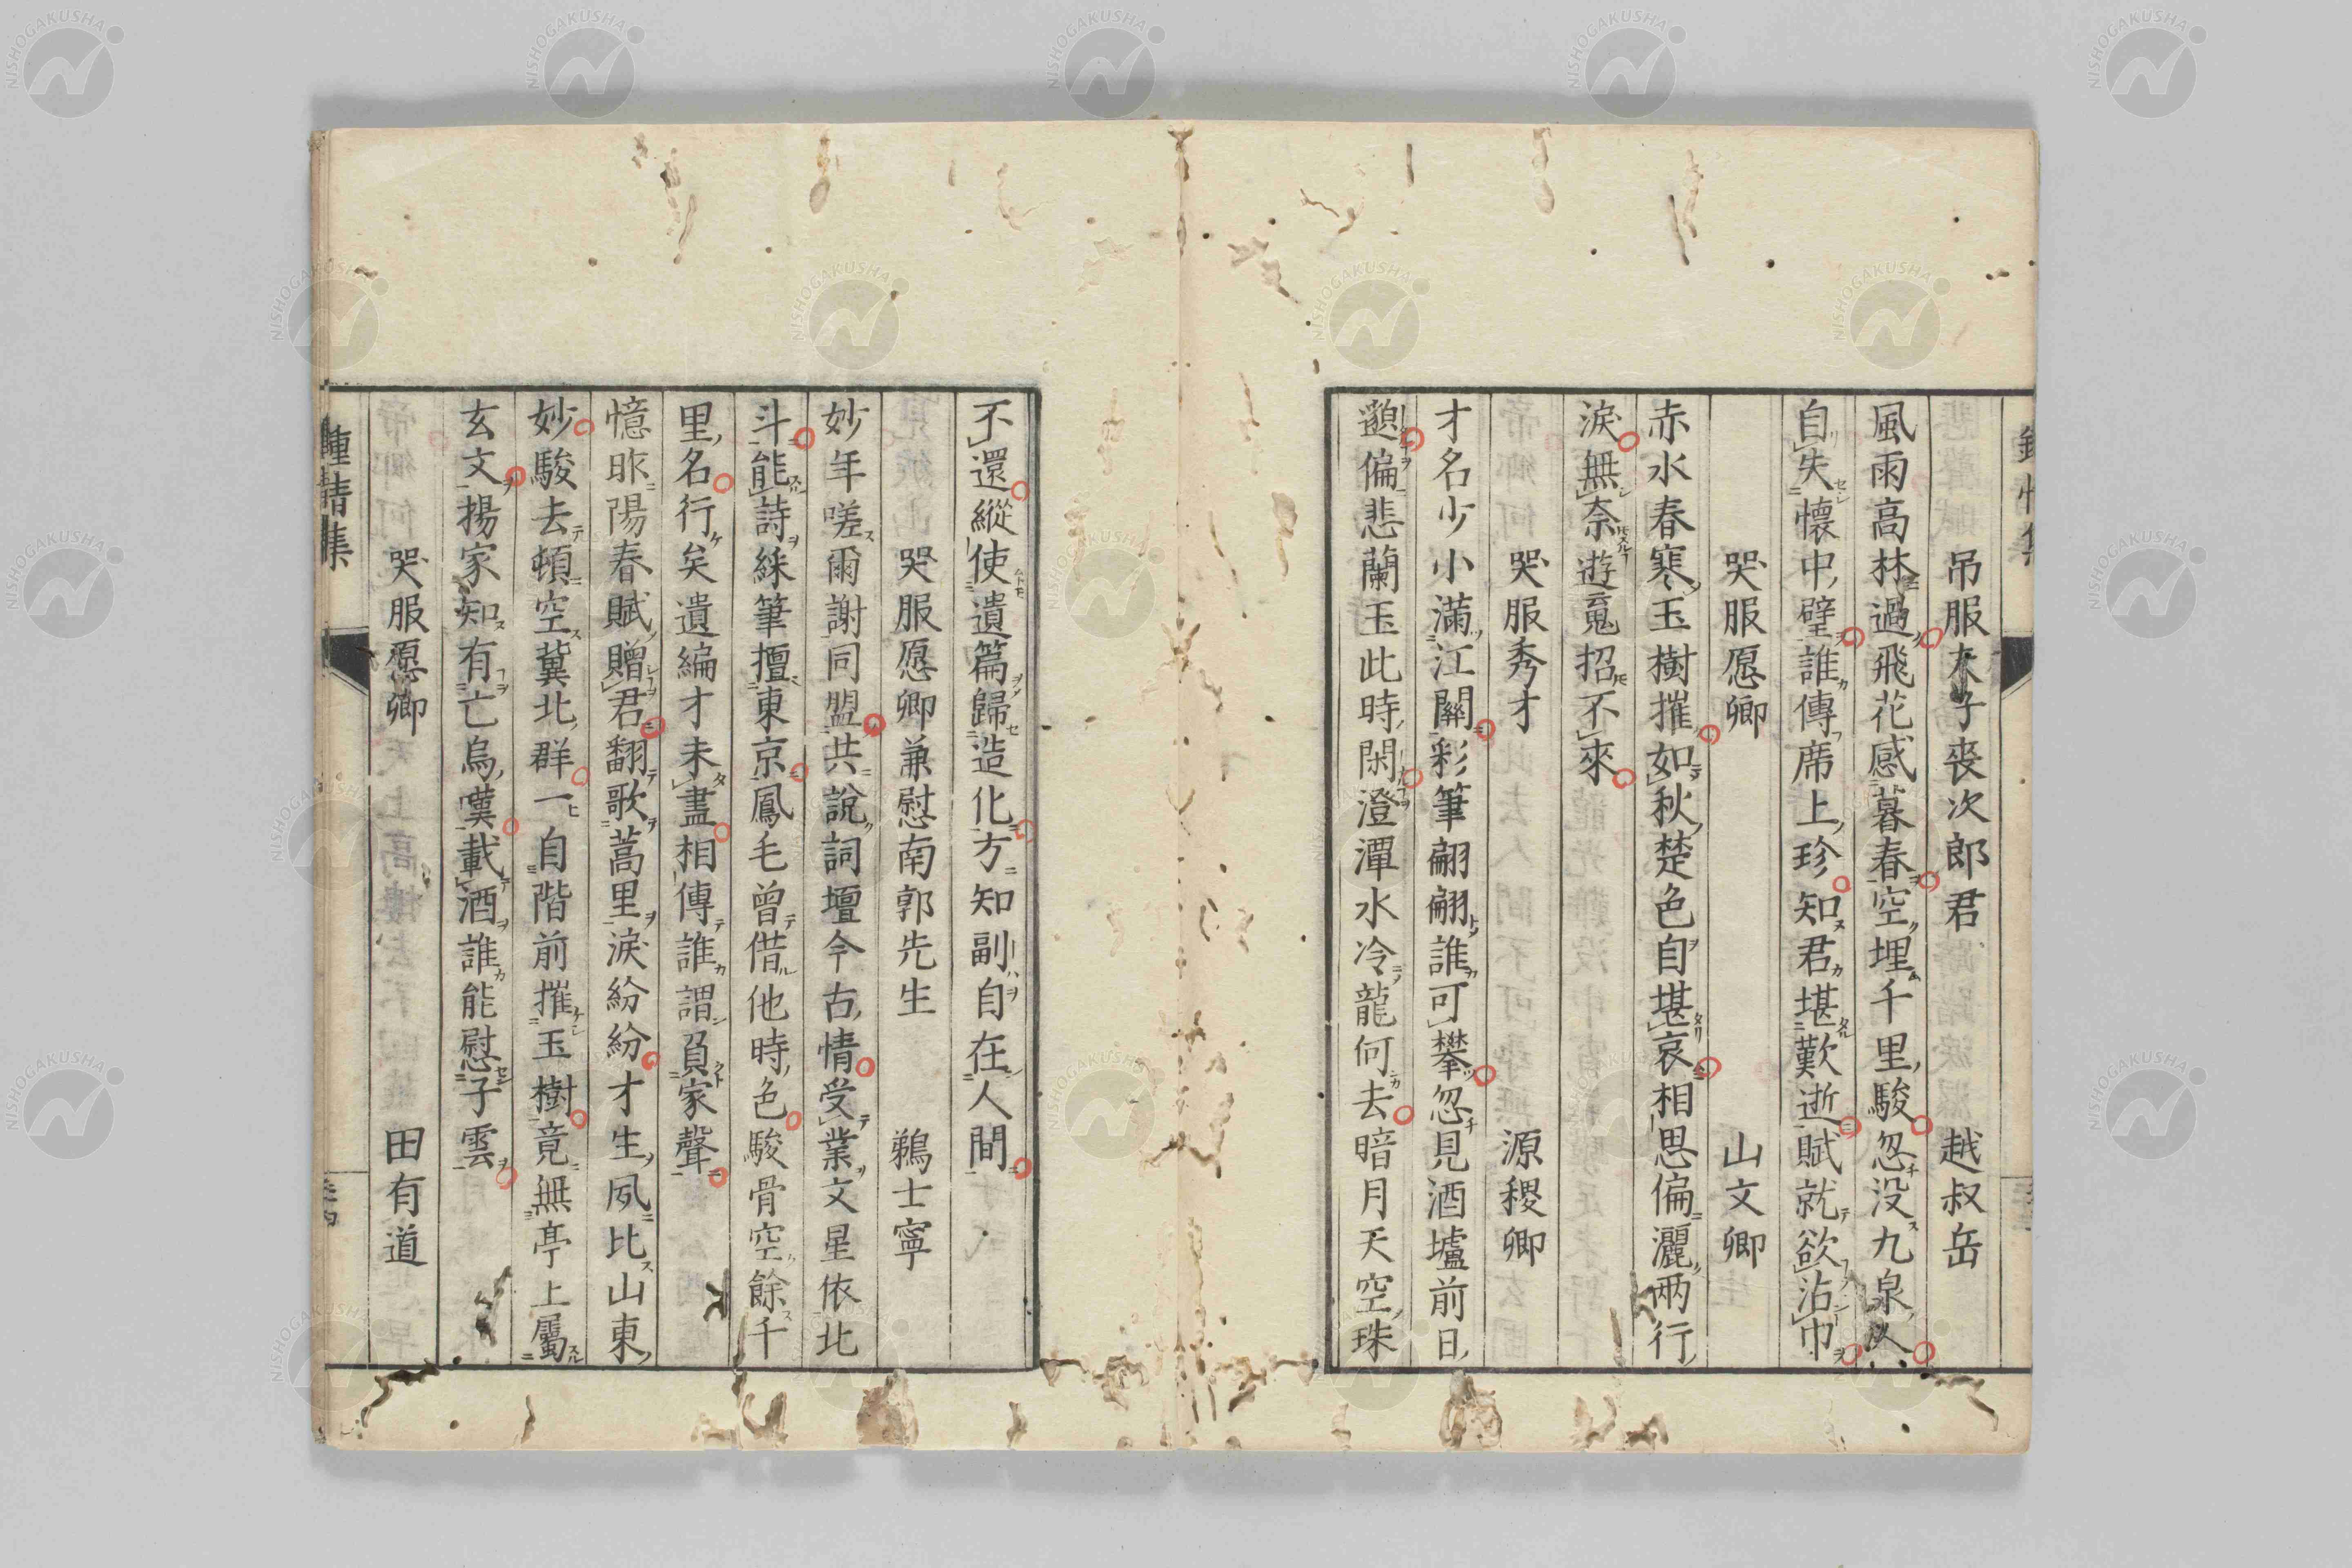 吊服夫子喪次郎君　越叔岳
風雨高林過飛花感暮春空埋千里駿忽没九泉人
自失懷中璧誰傳席上珍知君堪歎逝賦就欲沾巾
哭服愿卿　山文卿
赤水春寒玉樹摧如秋楚色自堪哀相思偏灑兩行
淚無奈遊䰟招不來
哭服秀才　源稷卿
才名少小滿江關彩筆翩翩誰可攀忽見酒壚前日
邈偏悲蘭玉此時閑澄潭水冷龍何去暗月天空珠
不還縱使遺篇歸造化方知副自在人間
哭服愿卿兼慰南郭先生　鵜士寧
妙年嗟爾謝同盟共說詞壇今古情受業文星依北
斗能詩綵筆擅東京鳳毛曾借他時色駿骨空餘千
里名行矣遺編才未盡相傳誰謂負家聲
憶昨陽春賦贈君翻歌蒿里淚紛紛才生夙比山東
妙駿去頓空冀北群一自階前摧玉樹竟無亭上屬
玄文揚家知有亡烏嘆載酒誰能慰子雲
哭服愿卿　田有道
鍾情集
NISHOGAKUSHA